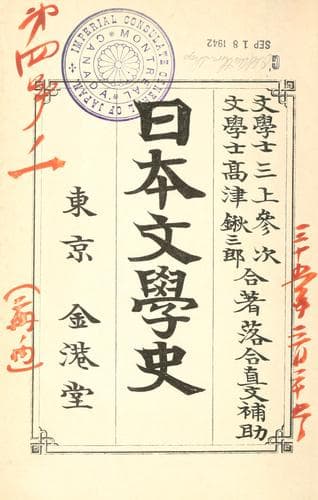 文學士 三上參次
文學士 高津鍬三郎 合著 落合直文補助
日本文學史
東京 金港堂
IMPERIAL CONSULATE GENERAL OF JAPAN
MONTREAL
CANADA
SEP 18 1942
第四号ノ一